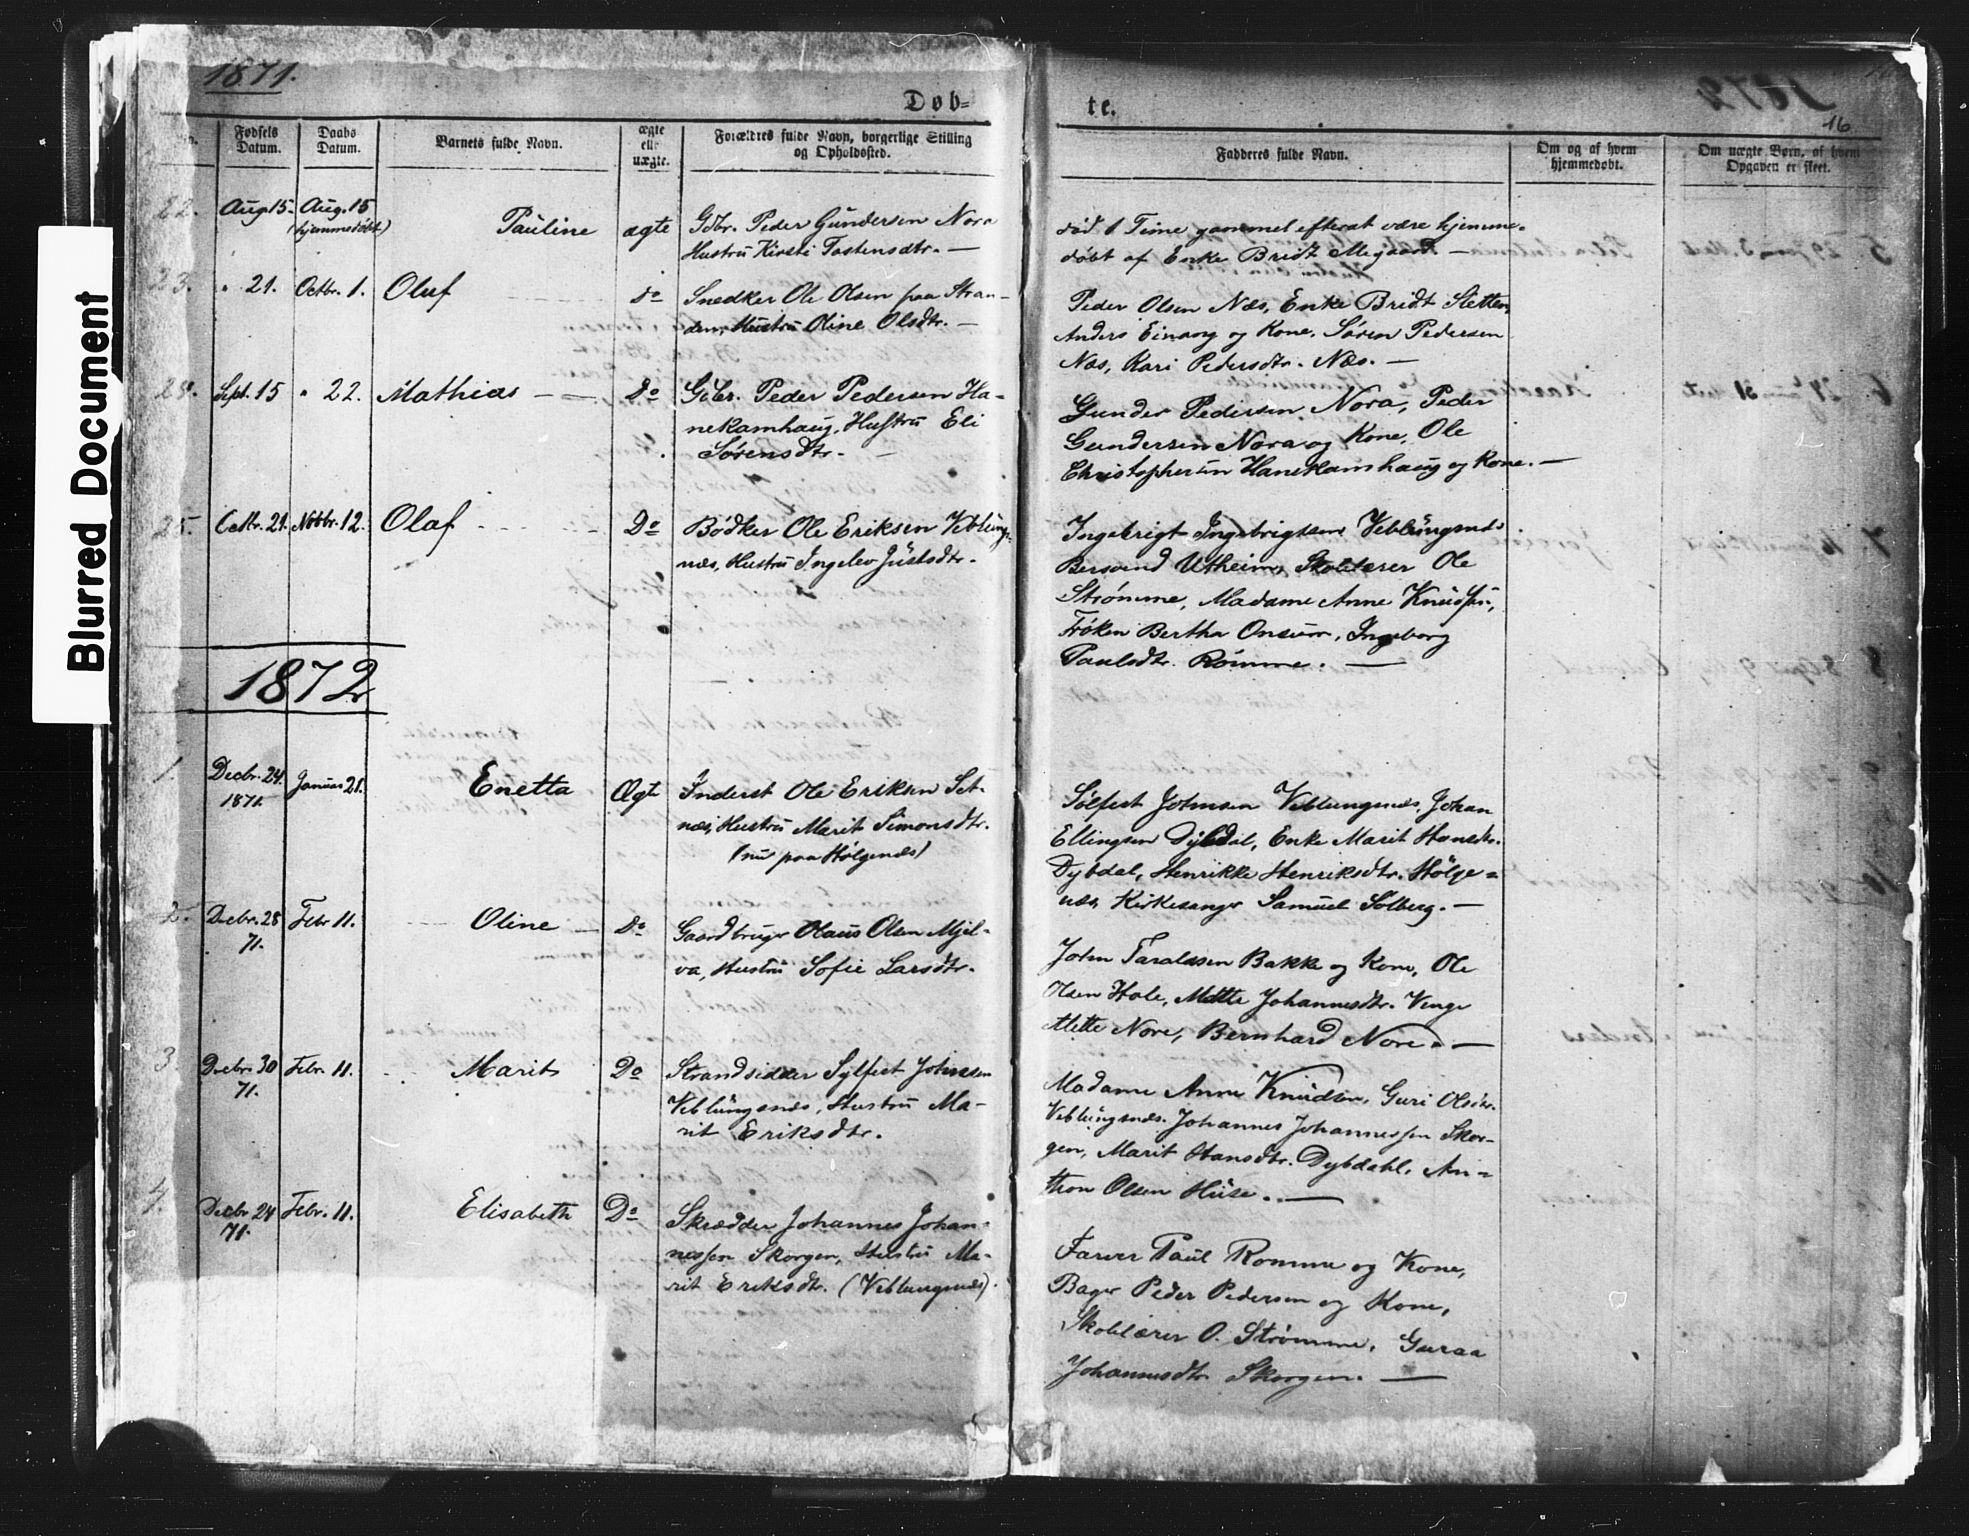 Blurred Document
1871.
Døb=
te.
1872
16
Fødsels Datum.
Daabs Datum.
Barnets fulde Navn.
ægte ell. uægte.
Forældres fulde Navn, borgerlige Stilling og Opholdssted.
Fadderes fulde Navn.
Om og af hvem hjemmedøbt.
Om uægte Børn, af hvem Opgaven er skeet.
22. Aug 15. Aug. 15 (hjemmedöbt) Pauline ægte Gdbr. Peder Gundersen Nora
Hustru Kirsti Tostensdtr. —
död 1 Time gammel efterat være hjemme-
döbt af Enke Bridt Megaard. —
23. " 21. Octbr. 1. Oluf do Snedker Ole Olsen paa Stran-
den, Hustru Oline Olsdtr. —
Peder Olsen Næs, Enke Bridt Sletten,
Anders Einang og Kone, Sören Pedersen
Næs, Kari Pedersdtr. Næs. —
24. Sept. 15 " 22. Mathias — Do Gdbr. Peder Pedersen Ha-
nekamhaug, Hustru Eli
Sörensdtr. —
Gunder Pedersen Nora, Peder
Gundersen Nora og Kone, Ole
Christophersen Hanekamhaug og Kone. —
25. Octbr. 21. Novbr. 12. Olaf Do Bödker Ole Eriksen Veblüngs-
næs, Hustru Ingelev Justsdtr.
Ingebrigt Ingebrigtsen Veblüngsnæs
Bersvend Utheim, Skolelærer Ole
Strömme, Madame Anne Knudsen,
Fröken Bertha Onsum, Ingeborg
Paulsdtr. Römme. —
1872
1. Decbr. 24. 1871. Januar 21. Enetta Ægte Inderst Ole Eriksen Set-
næs, Hustru Marit Simonsdtr.
(nu paa Hölgenæs)
Sölfest Johnsen Veblungsnæs, Johan
Ellingsen Dybdal, Enke Marit Hansdtr.
Dybdal, Henrikke Henriksdtr. Hölge-
næs, Kirkesanger Samuel Solberg. —
2. Decbr. 28 71. Febr. 11. Oline — Do Gaardbruger Olaus Olsen Mjel-
va, Hustru Sofie Larsdtr.
John Taraldsen Bakke og Kone, Ole
Olsen Hole, Mette Johannesdtr. Venge
Mette Nore, Bernhard Nore. —
3. Decbr. 30 71. Febr. 11. Marit Do Strandsidder Sylfest Johnsen
Veblüngsnæs, Hustru Ma-
rit Eriksdtr.
Madame Anne Knüdsen, Guri Olsdtr.
Veblüngsnæs. Johannes Johannessen Skor-
gen, Marit Hansdtr. Dybdahl, An-
thon Olsen Hüse. —
4. Decbr. 24 71. Febr. 11. Elisabeth Do Skrædder Johannes Johan-
nessen Skorgen, Hustru Ma-
rit Eriksdtr. (Veblungsnæs).
Farver Paul Romme og Kone,
Bager Peder Pedersen og Kone,
Skolelærer O. Strömme, Guraa
Johannesdtr Skorgen. —